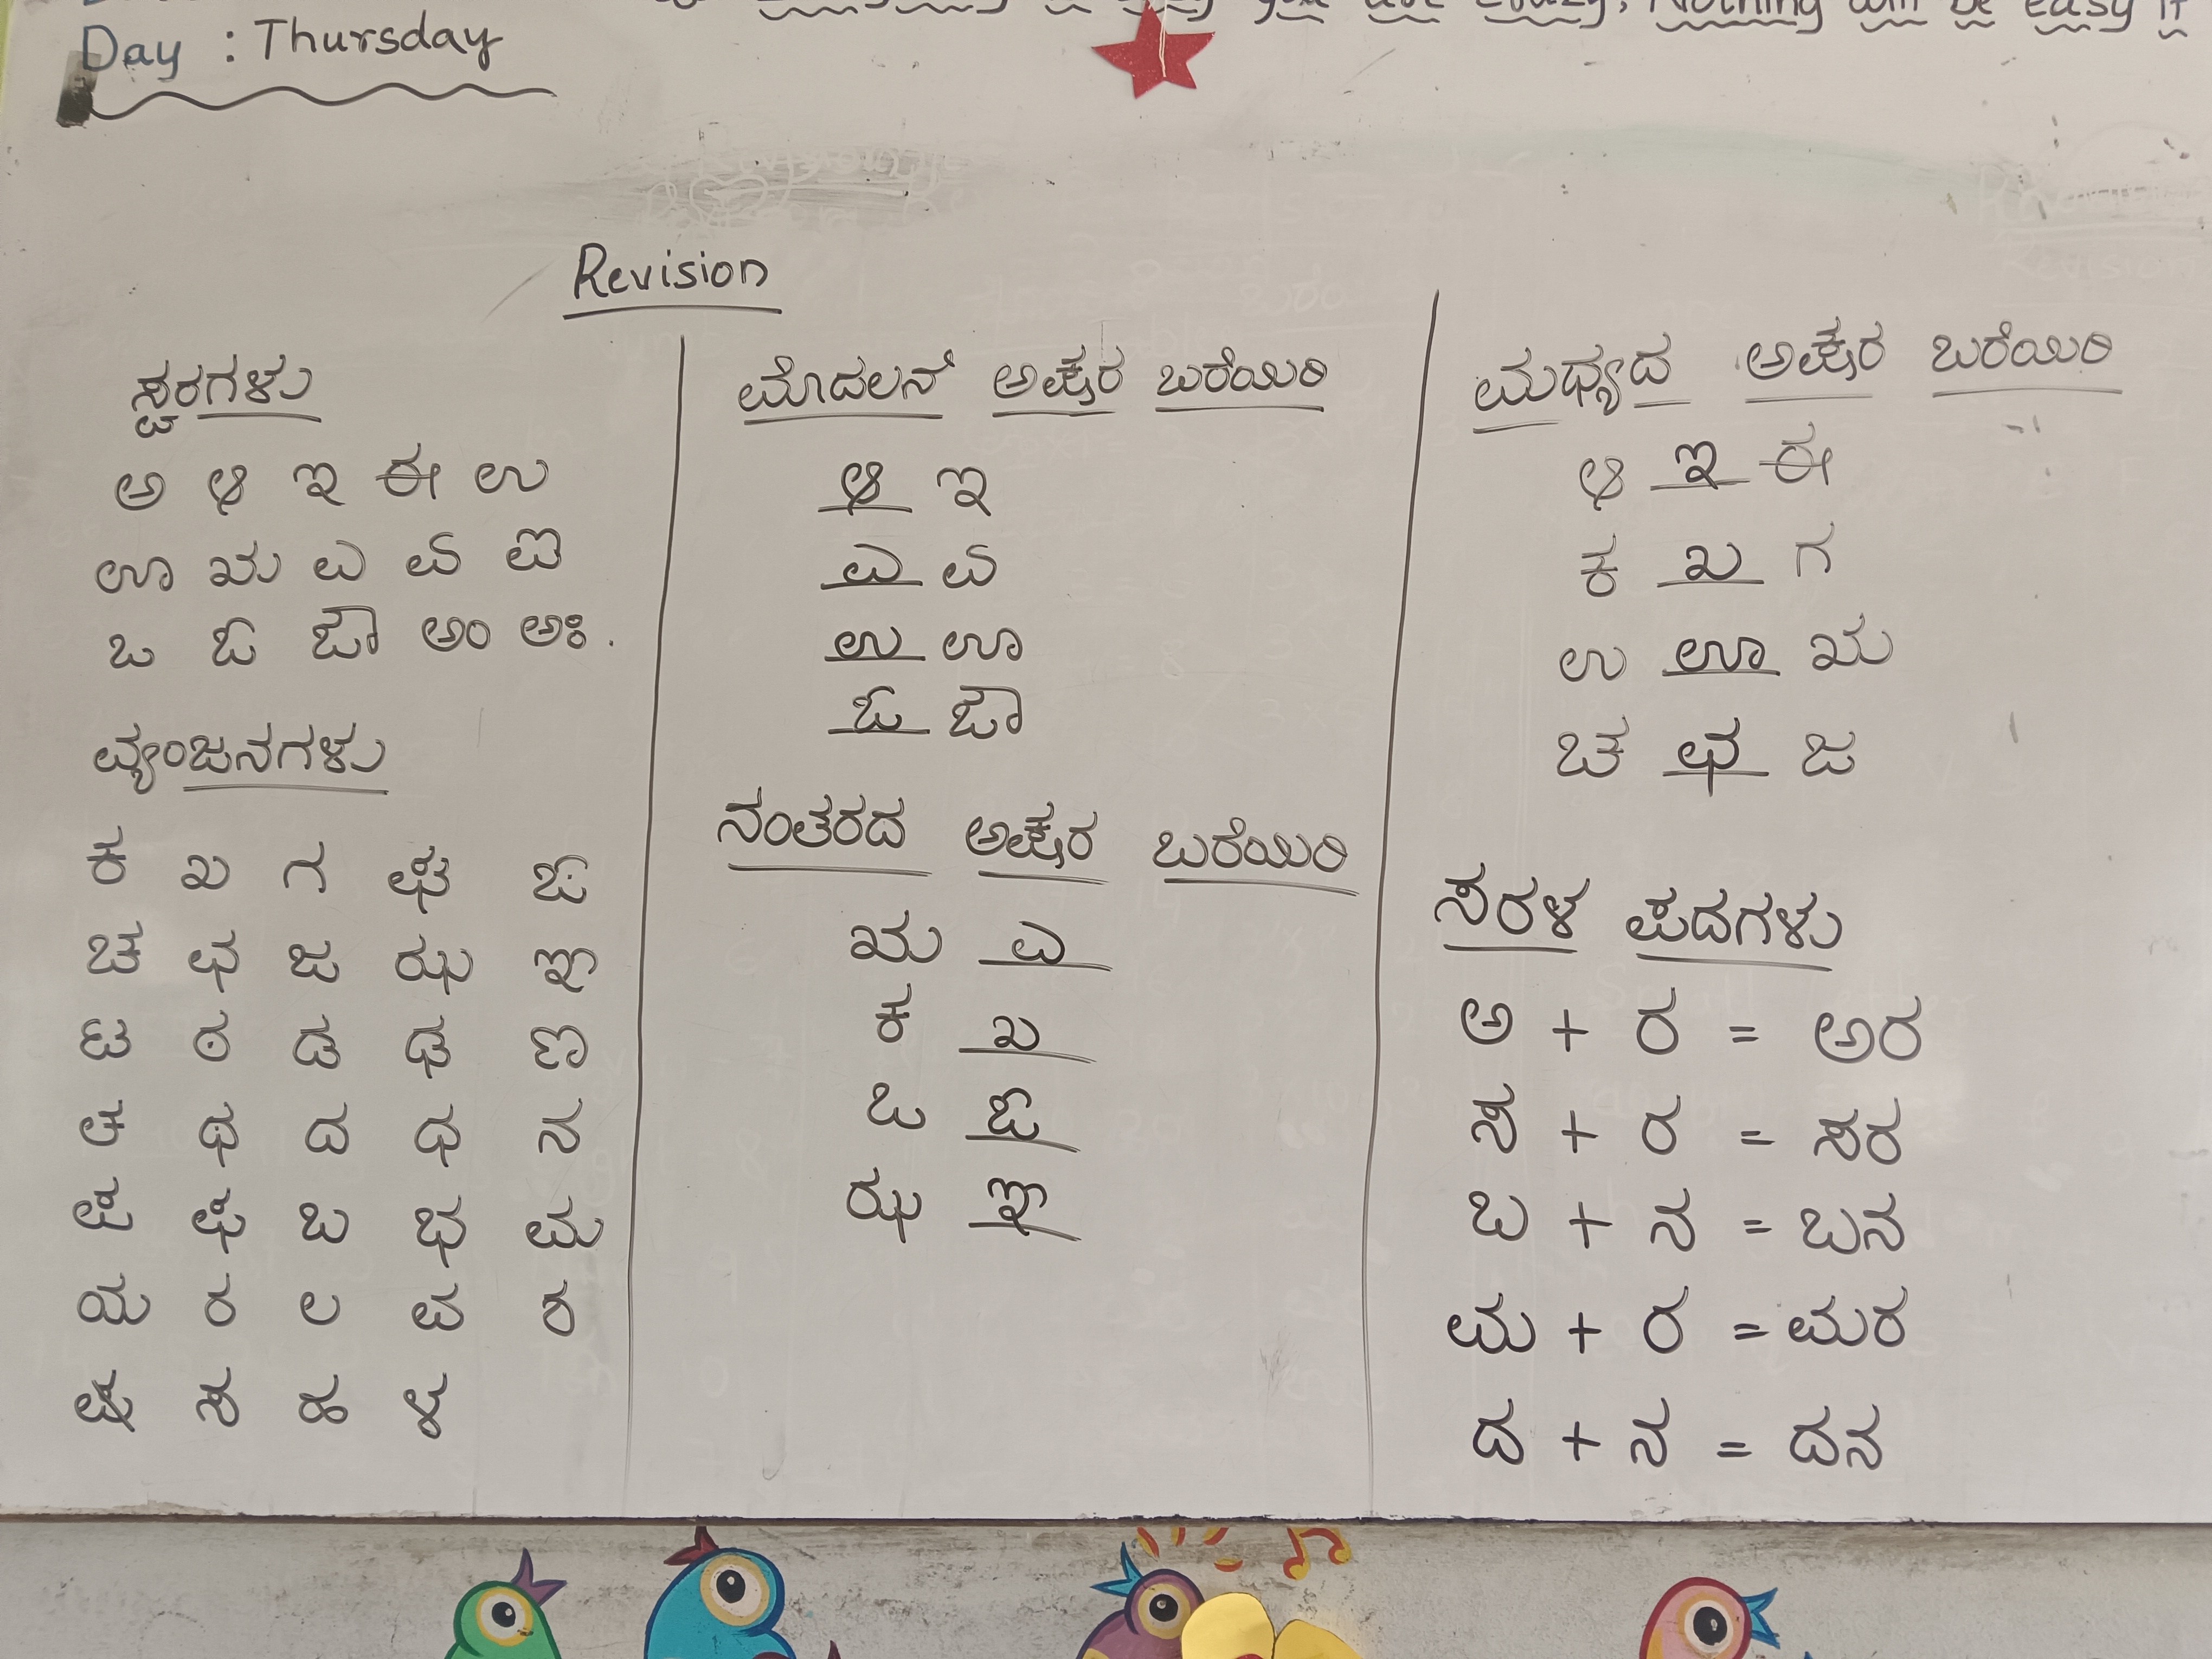 you are crazy, Nothing will be easy if
Day : Thursday
Revision
ಸ್ವರಗಳು
ಅ ಆ ಇ ಈ ಉ
ಊ ಋ ಎ ಏ ಐ
ಒ ಓ ಔ ಅಂ ಅಃ.
ವ್ಯಂಜನಗಳು
ಕ ಖ ಗ ಘ ಙ
ಚ ಛ ಜ ಝ ಞ
ಟ ಠ ಡ ಢ ಣ
ತ ಥ ದ ಧ ನ
ಪ ಫ ಬ ಭ ಮ
ಯ ರ ಲ ವ ಶ
ಷ ಸ ಹ ಳ
ಮೊದಲನ್ ಅಕ್ಷರ ಬರೆಯಿರಿ
ಆ ಇ
ಎ ಏ
ಉ ಊ
ಓ ಔ
ನಂತರದ ಅಕ್ಷರ ಬರೆಯಿರಿ
ಋ ಎ
ಕ ಖ
ಒ ಓ
ಝ ಞ
ಮಧ್ಯದ ಅಕ್ಷರ ಬರೆಯಿರಿ
ಆ ಇ ಈ
ಕ ಖ ಗ
ಉ ಊ ಋ
ಚ ಛ ಜ
ಸರಳ ಪದಗಳು
ಅ + ರ = ಅರ
ಸ + ರ = ಸರ
ಬ + ನ = ಬನ
ಮ + ರ = ಮರ
ದ + ನ = ದನ